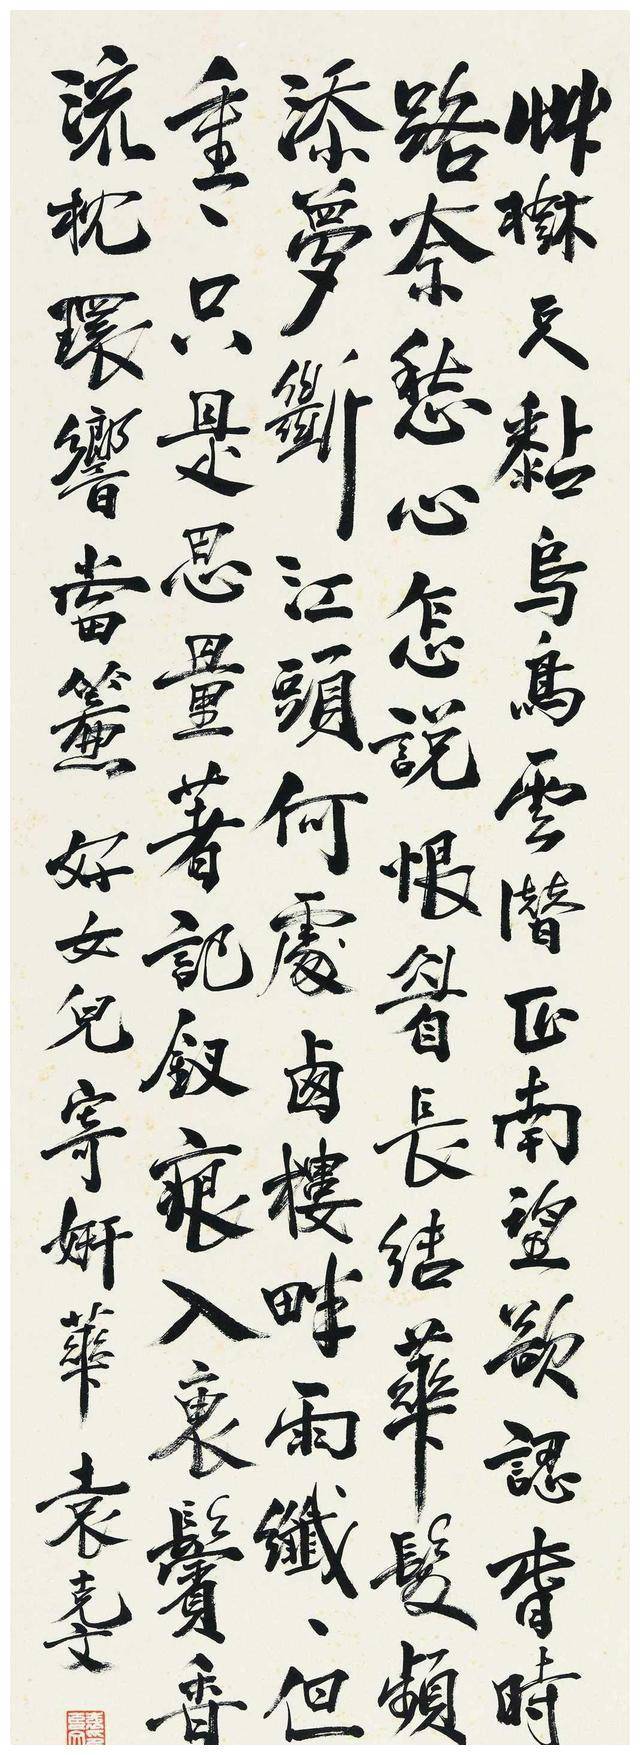 艸樹天黏烏鳥雲潛正南望欲認時
路奈愁心怎說恨眉長結華髮頻
添夢斷江頭何處卥樓畔雨纖、但
重、只是思量著記釵痕入裏鬢香
流枕環響當簾 好女兒寄妍華 袁克文